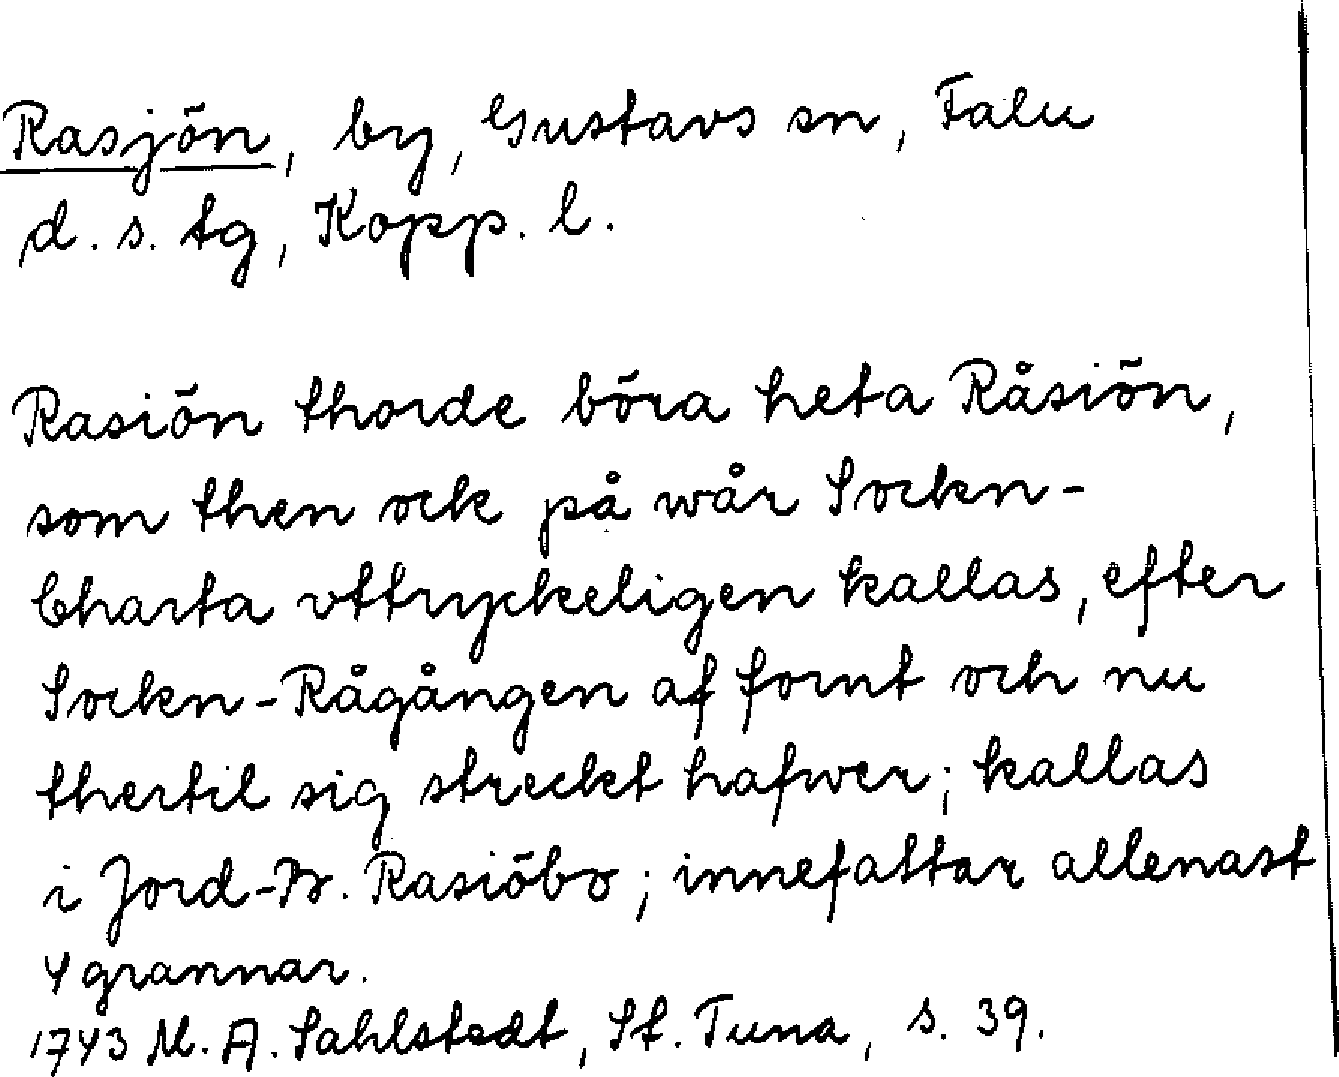 Rasjön, by, Gustavs sn, Falu
d. s. tg, Kopp. l.
Rasiön thorde böra heta Råsiön,
som then ock på wår Sockn-
Charta vttryckeligen kallas, efter
Sockn-Rågången af fornt och nu
thertil sig streckt hafwer; kallas
i Jord-B. Rasiöbo; innefattar allenast
4 grannar.
1743 M. A. Sahlstedt, St. Tuna, s. 39.